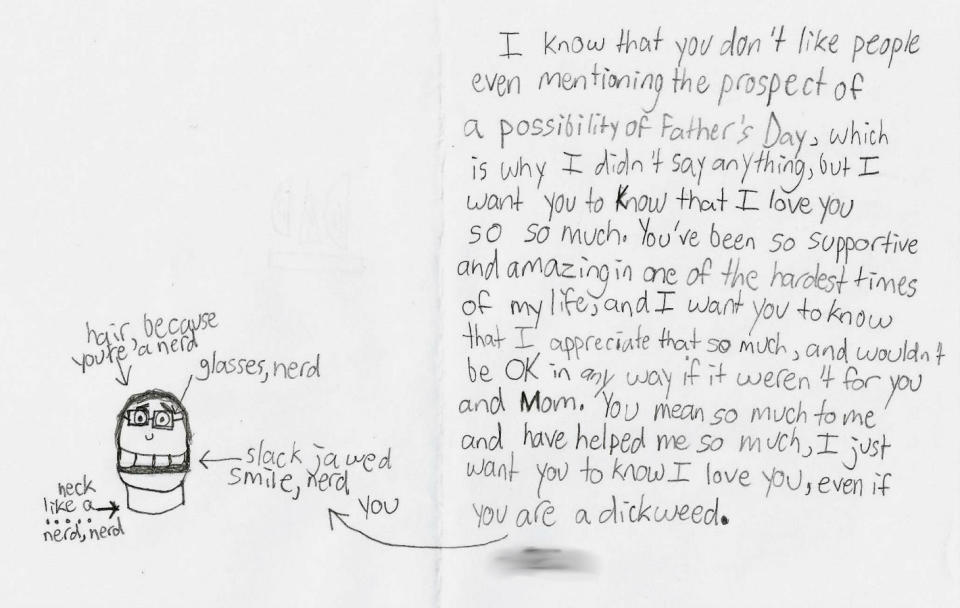 hair, because
you're, a nerd
glasses, nerd
slack jawed
smile, nerd
neck
like a
......
nerd, nerd
you
I know that you don't like people
even mentioning the prospect of
a possibility of Father's Day, which
is why I didn't say anything, but I
want you to know that I love you
so so much. You've been so supportive
and amazing in one of the hardest times
of my life, and I want you to know
that I appreciate that so much, and wouldn't
be OK in any way if it weren't for you
and Mom. You mean so much to me
and have helped me so much, I just
want you to know I love you, even if
you are a dickweed.